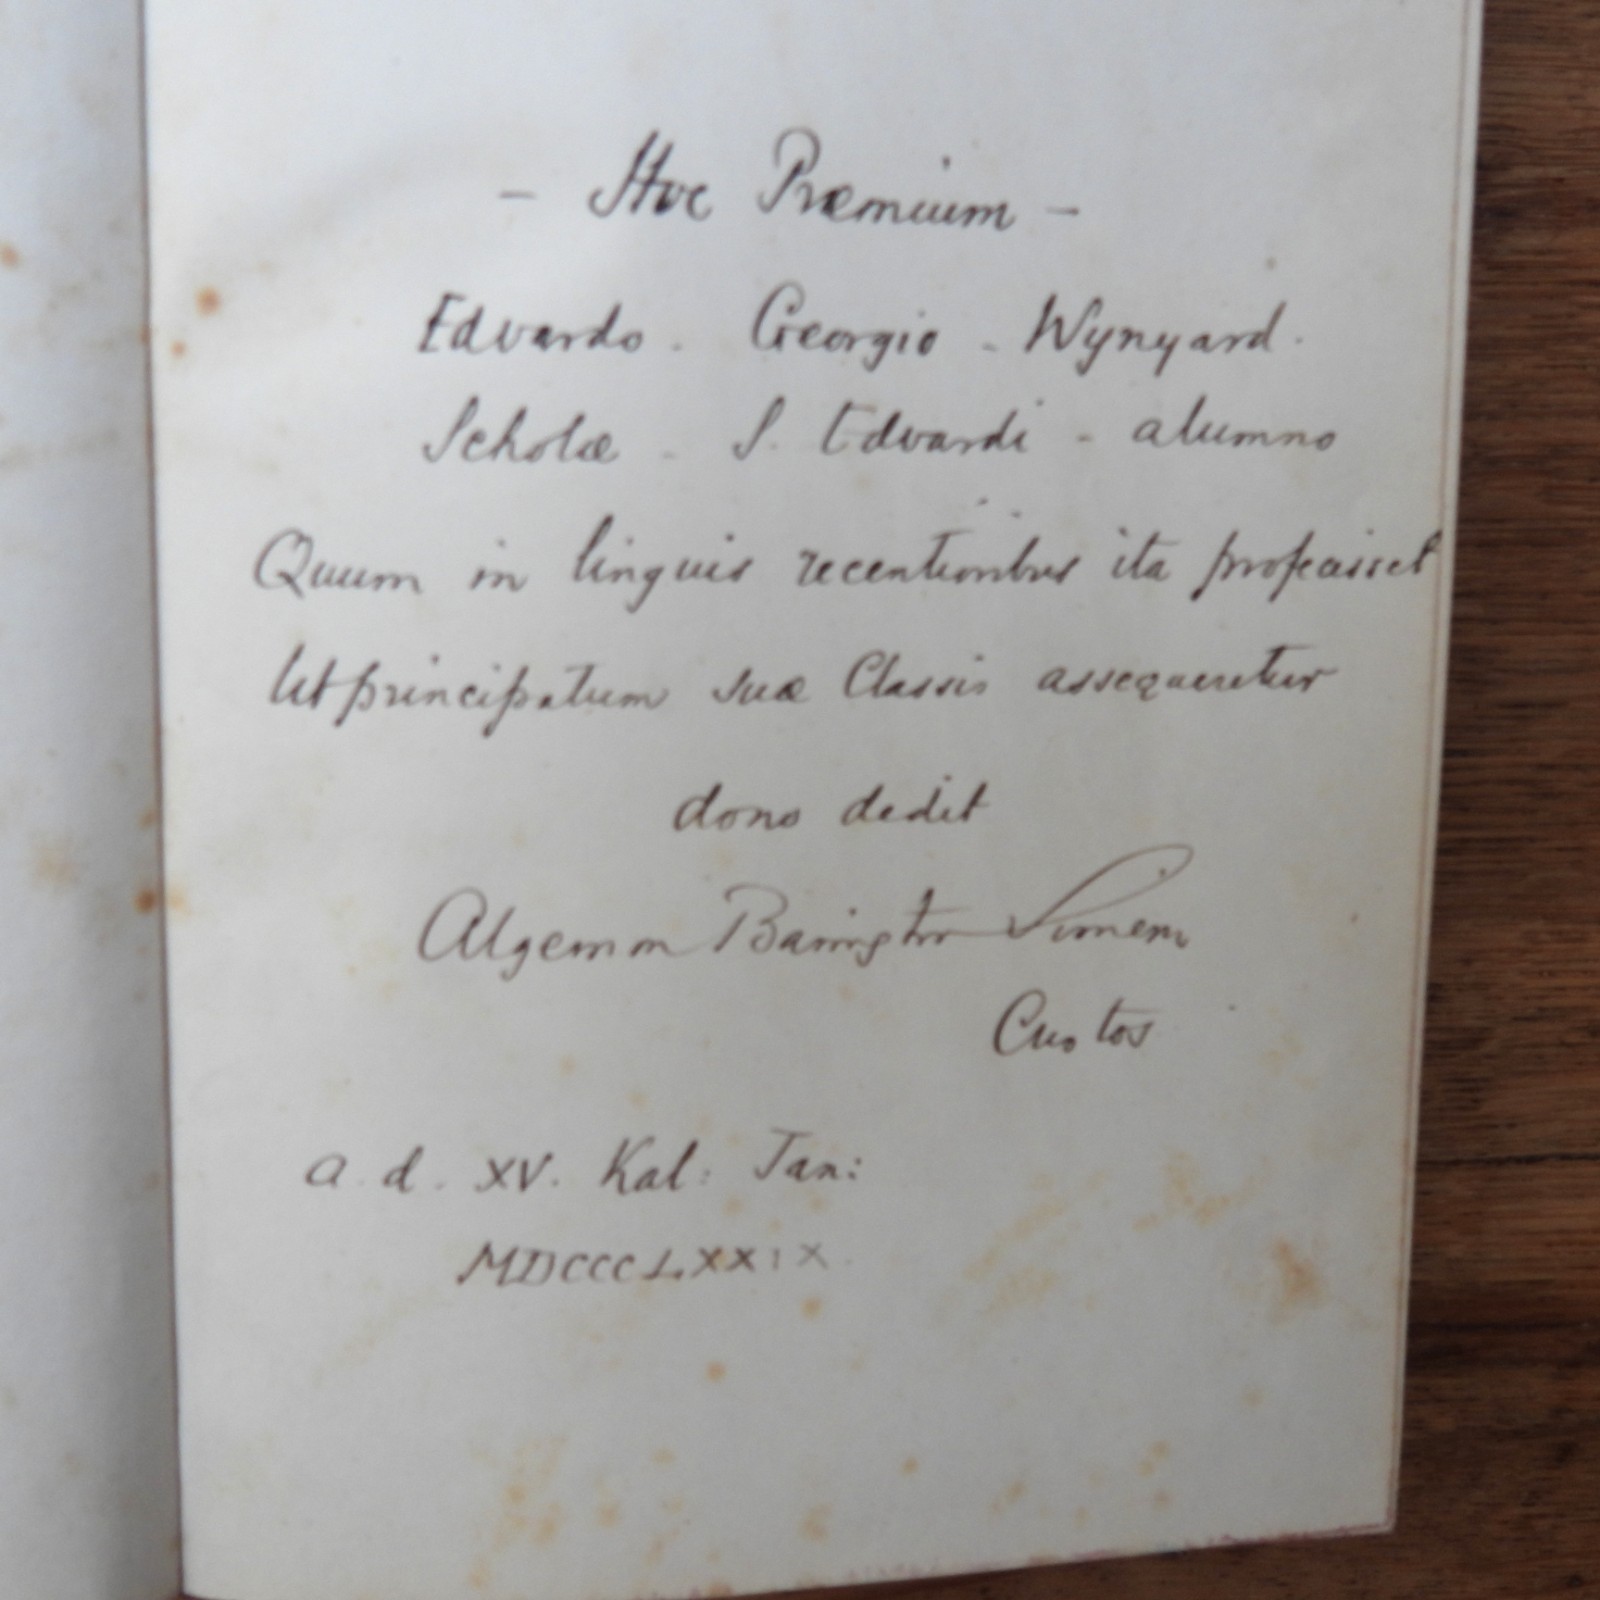 - Hoc Præmium -
Edvardo - Georgio - Wynyard.
Scholæ - S. Edvardi - alumno
Quum in linguis recentioribus ita profecisset
Ut principatum suæ Classis assequeretur
dono dedit
Algernon Barrington Simeon
Custos
a. d. XV. Kal: Jan:
MDCCCLXXIX.